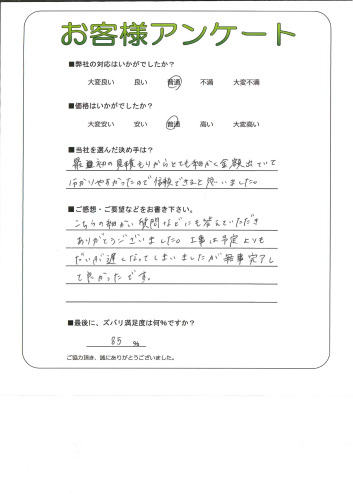 お客様アンケート
■弊社の対応はいかがでしたか？
大変良い 良い 普通 不満 大変不満
■価格はいかがでしたか？
大変安い 安い 普通 高い 大変高い
■当社を選んだ決め手は？
最初の見積もりからとても細かく金額出ていて
分かりやすかったので信頼できると思いました。
■ご感想・ご要望などをお書き下さい。
こちらの細かい質問などにも答えていただき
ありがとうございました。工事は予定よりも
だいぶ遅くなってしまいましたが無事完了し
て良かったです。
■最後に、ズバリ満足度は何%ですか？
85 %
ご協力頂き、誠にありがとうございました。